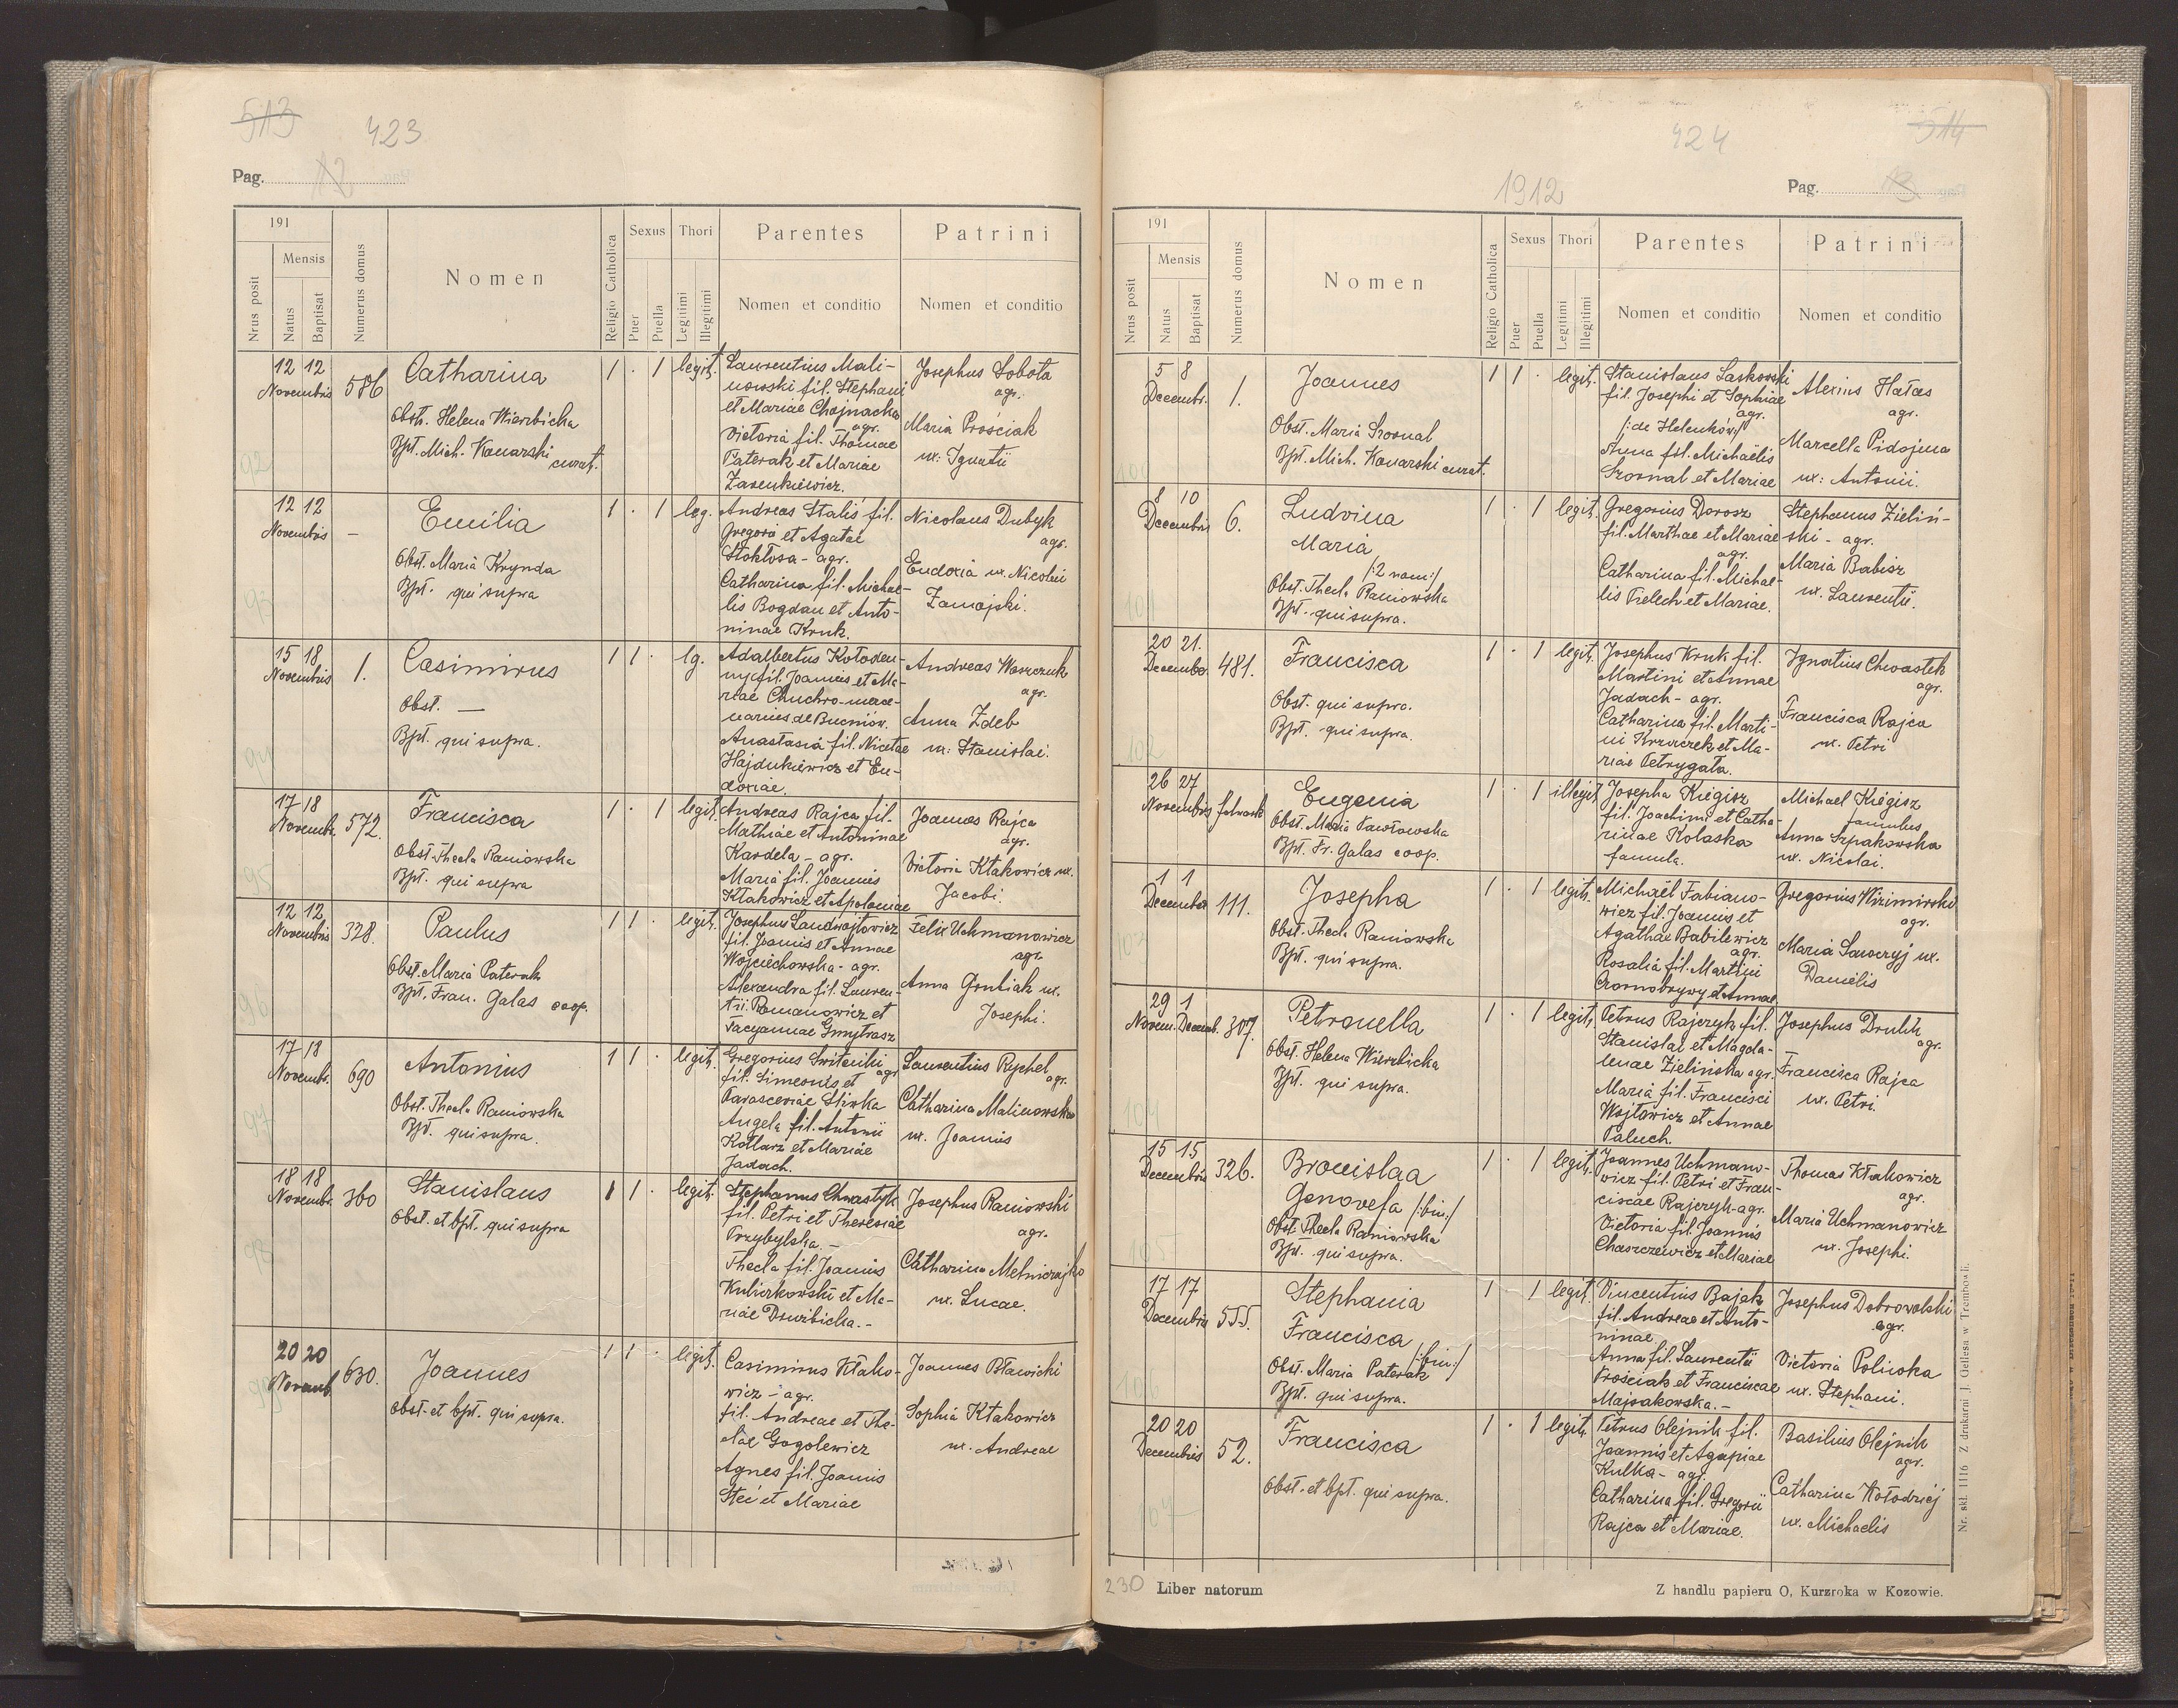 513
423
Pag. 12
191
Nrus posit
Mensis
Natus
Baptisat
Numerus domus
Nomen
Religio Catholica
Sexus
Puer
Puella
Thori
Legitimi
Illegitimi
Parentes
Nomen et conditio
Patrini
Nomen et conditio
92
12 12
Novembris
586
Catharina
Obst. Helena Wierzbicka
Bpt. Mich. Konarski
curat.
1 . 1 legit.
Laurentius Mali-
nowski fil. Stephani
et Mariae Chojnacka
agr.
Victoria fil. Thomae
Paterak et Mariae
Zasenkiewicz.
Josephus Sobota
agr.
Maria Prościak
ux: Ignatii
93
12 12
Novembris
-
Emilia
Obst. Maria Krynda
Bpt. qui supra
1 . 1 leg.
Andreas Stalis fil.
Gregorii et Agatae
Stokłosa - agr.
Catharina fil. Michae-
lis Bogdan et Anto-
ninae Kruk.
Nicolaus Dubyk
agr.
Eudoxia ux. Nicolai
Zamojski.
94
15 18
Novembris
1.
Casimirus
Obst. —
Bpt. qui supra.
1 1 . lg.
Adalbertus Kołoden-
nyj fil. Joannis et Ma-
riae Chuchro - merce-
narius de Bucniów.
Anastasia fil. Nicetae
Hajdukiewicz et Eu-
doxiae.
Andreas Waszczuk
agr.
Anna Zdeb
ux: Stanislai.
95
17 18
Novembr.
572.
Francisca
Obst. Thecla Raniowska
Bpt. qui supra
1 . 1 legit.
Andreas Rajca fil.
Mathiae et Antoninae
Kardela - agr.
Maria fil. Joannis
Kłakowicz et Apoloniae
Joannes Rajca
agr.
Victoria Kłakowicz ux.
Jacobi.
96
12 12
Novembris
328.
Paulus
Obst. Maria Paterak
Bpt. Fran. Galas coop.
1 1 . legit.
Josephus Landwojtowicz
fil. Joannis et Annae
Wojciechowska - agr.
Alexandra fil. Lauren-
tii Romanowicz et
Tacyannae Gmytrasz
Felix Uchmanowicz
agr.
Anna Gontiak ux.
Josephi.
97
17 18
Novembr.
690
Antonius
Obst. Thecla Raniowska
Bpt. qui supra.
1 1 . legit.
Gregorius Switenki
agr.
fil. Simeonis et
Parasceviae Sliwka
Angela fil. Antonii
Kotlarz et Mariae
Jadach.
Laurentius Rychel
agr.
Catharina Malinowska
ux. Joannis
98
18 18
Novembr.
360
Stanislaus
Obst. et bpt. qui supra
1 1 . legit.
Stephanus Chwastyk
fil. Petri et Theresiae
Przybylska. -
Thecla fil. Joannis
Kulczkowski et Ma-
riae Dswibicka. -
Josephus Raniowski
agr.
Catharina Melniczajko
ux. Lucae.
99
20 20
Novemb.
630.
Joannes
obst. et bpt. qui supra.
1 1 . legit.
Casimirus Kłako-
wicz - agr.
fil. Andreae et The-
clae Gogolewicz
Agnes fil. Joannis
Steć et Mariae
Joannes Bławicki
Sophia Kłakowicz
ux. Andreae
424
514
1912
Pag. 13
191
Nrus posit
Mensis
Natus
Baptisat
Numerus domus
Nomen
Religio Catholica
Sexus
Puer
Puella
Thori
Legitimi
Illegitimi
Parentes
Nomen et conditio
Patrini
Nomen et conditio
100
5 8
Decembr.
1.
Joannes
Obst. Maria Srosnal
Bpt. Mich. Konarski curat.
1 1 . legit.
Stanislaus Laskowski
fil. Josephi et Sophiae
agr.
/:de Helenków:/
Anna fil. Michaëlis
Srosnal et Mariae
Alexius Hałas
agr.
Marcella Pidojma
ux: Antonii.
101
8 10
Decembris
6.
Ludvina
Maria
/:2 nom:/
Obst. Thecla Raniowska
Bpt. qui supra.
1 . 1 legit.
Gregorius Dorosz
fil. Marthae et Mariae
agr.
Catharina fil. Michae-
lis Tielech et Mariae.
Stephanus Zieliń-
ski - agr.
Maria Babisz
ux. Laurentii.
102
20 21.
Decembr.
481.
Francisca
Obst. qui supra.
Bpt. qui supra.
1 . 1 legit.
Josephus Kruk fil.
Martini et Annae
Jadach - agr.
Catharina fil. Marti-
ni Krzyczek et Ma-
riae Petrygała.
Ignatius Chwastek
agr.
Francisca Rajca
ux. Petri
26 27
Novembris
folwark
Eugenia
Obst. Maria Pawłowska
Bpt. Fr. Galas coop.
1 . 1 illegit.
Josepha Kięgisz
fil. Joachimi et Catha-
rinae Kolaska
famula.
Michael Kięgisz
famulus
Anna Szpakowska
ux. Nicolai.
103
1 1
Decembr.
111.
Josepha
Obst. Thecla Raniowska
Bpt. qui supra.
1 . 1 legit.
Michaël Fabiano-
wicz fil. Joannis et
Agathae Babilewicz
agr.
Rosalia fil. Martini
Czornobrywy et Annae
Gregorius Wizimirski
agr.
Maria Sawczyj ux.
Danielis
29 1
Novem. Decemb.
307.
Petronella
Obst. Helena Wierzbicka
Bpt. qui supra.
1 . 1 legit.
Petrus Rajczyk fil.
Stanislai et Magda-
lenae Zielinska agr.
Maria fil. Francisci
Wojtowicz et Annae
Paluch.
Josephus Druhk
agr.
Francisca Rajca
ux. Petri.
15 15
Decembris
326.
Bronislaa
Genovefa /:bin:/
Obst. Thecla Raniowska
Bpt. qui supra.
1 . 1 legit.
Joannes Uchmano-
wicz fil. Petri et Fran-
ciscae Rajczyk - agr.
Victoria fil. Joannis
Chaszczewicz et Mariae
Thomas Kłakowicz
agr.
Maria Uchmanowicz
ux. Josephi.
17 17
Decembris
555.
Stephania
Francisca
/:bin:/
Obst. Maria Paterak
Bpt. qui supra.
1 1 legit.
Vincentius Bajak
fil. Andreae et Anto-
ninae
Anna fil. Laurentii
Prościak et Franciscae
Majsakowska. -
Josephus Dobrowolski
agr.
Victoria Polucka
ux. Stephani.
20 20
Decembris
52.
Francisca
Obst. et bpt. qui supra.
1 . 1 legit.
Petrus Olejnik fil.
Joannis et Agapiae
Kulka - agr.
Catharina fil. Gregorii
Rajca et Mariae.
Basilius Olejnik
agr.
Catharina Kołodziej
ux. Michaelis
230 Liber natorum
Z handlu papieru O. Kurzroka w Kozowie.
Nr. skł. 1116 Z drukarni J. Gellesa w Trembowli.